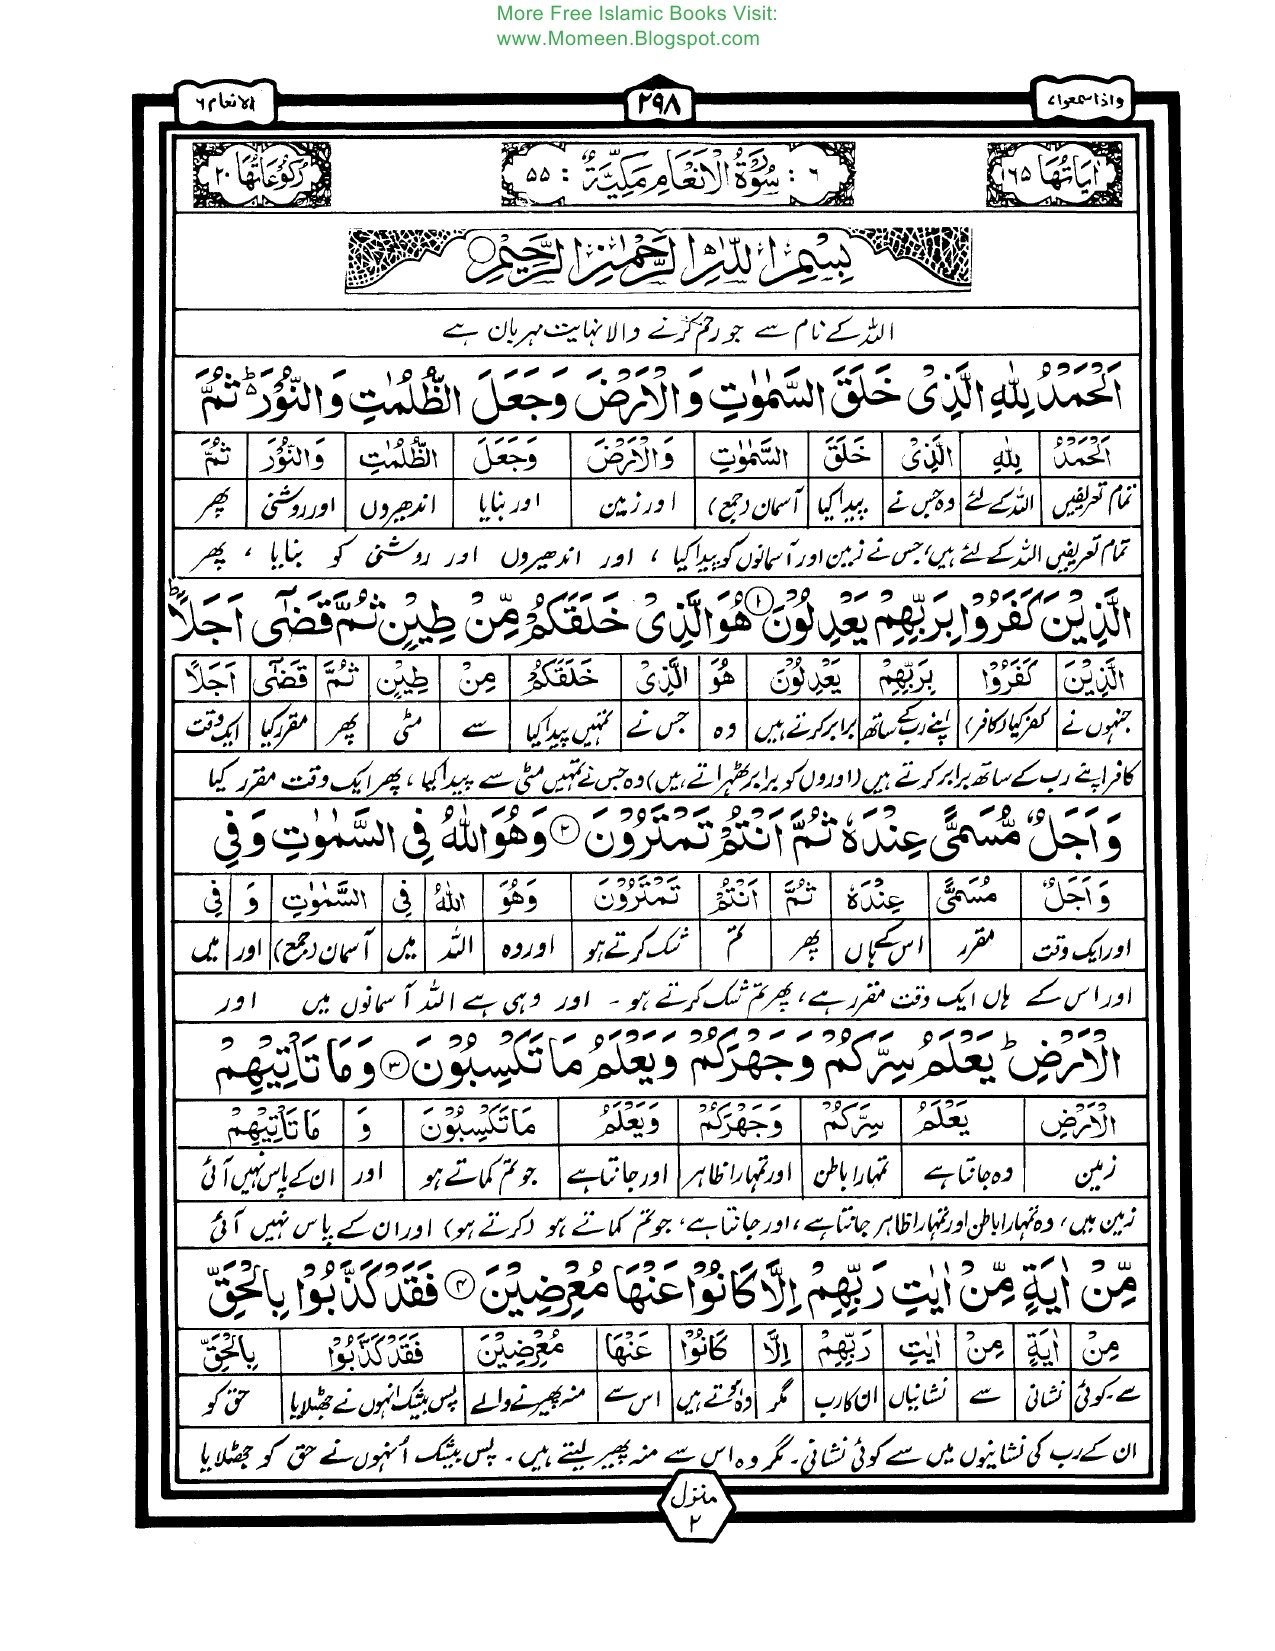 More Free Islamic Books Visit:
www.Momeen.Blogspot.com
واذا سمعوا ۷ ۲۹۸ الانعام ۶
اٰیَاتُهَا ۱۶۵ ۶ : سُوْرَةُ الْاَنْعَامِ مَکِّیَّةٌ : ۵۵ رُکُوْعَاتُهَا ۲۰
بِسْمِ اللّٰهِ الرَّحْمٰنِ الرَّحِیْمِ
اللہ کے نام سے جو رحم کرنے والا نہایت مہربان ہے
اَلْحَمْدُ لِلّٰهِ الَّذِیْ خَلَقَ السَّمٰوٰتِ وَالْاَرْضَ وَجَعَلَ الظُّلُمٰتِ وَالنُّوْرَ ؕ۬ ثُمَّ
اَلْحَمْدُ لِلّٰهِ الَّذِیْ خَلَقَ السَّمٰوٰتِ وَالْاَرْضَ وَجَعَلَ الظُّلُمٰتِ وَالنُّوْرَ ثُمَّ
تمام تعریفیں اللہ کے لئے وہ جس نے پیدا کیا آسمان (جمع) اور زمین اور بنایا اندھیروں اور روشنی پھر
تمام تعریفیں اللہ کے لئے ہیں، جس نے زمین اور آسمانوں کو پیدا کیا ، اور اندھیروں اور روشنی کو بنایا ، پھر
الَّذِیْنَ کَفَرُوْا بِرَبِّهِمْ یَعْدِلُوْنَ ۱ هُوَ الَّذِیْ خَلَقَکُمْ مِّنْ طِیْنٍ ثُمَّ قَضٰۤی اَجَلًا ؕ
الَّذِیْنَ کَفَرُوْا بِرَبِّهِمْ یَعْدِلُوْنَ هُوَ الَّذِیْ خَلَقَکُمْ مِنْ طِیْنٍ ثُمَّ قَضٰۤی اَجَلًا
جنہوں نے کفر کیا (کافر) اپنے رب کے ساتھ برابر کرتے ہیں وہ جس نے تمہیں پیدا کیا سے مٹی پھر مقرر کیا ایک وقت
کافر اپنے رب کے ساتھ برابر کرتے ہیں (اوروں کو برابر ٹھہراتے ہیں) وہ جس نے تمہیں مٹی سے پیدا کیا ، پھر ایک وقت مقرر کیا
وَ اَجَلٌ مُّسَمًّی عِنْدَهٗ ثُمَّ اَنْتُمْ تَمْتَرُوْنَ ۲ وَهُوَ اللّٰهُ فِی السَّمٰوٰتِ وَفِی
وَ اَجَلٌ مُسَمًّی عِنْدَهٗ ثُمَّ اَنْتُمْ تَمْتَرُوْنَ وَهُوَ اللّٰهُ فِی السَّمٰوٰتِ وَ فِی
اور ایک وقت مقرر اس کے ہاں پھر تم شک کرتے ہو اور وہ اللہ میں آسمان (جمع) اور میں
اور اس کے ہاں ایک وقت مقرر ہے، پھر تم شک کرتے ہو ۔ اور وہی ہے اللہ آسمانوں میں اور
الْاَرْضِ ؕ یَعْلَمُ سِرَّکُمْ وَجَهْرَکُمْ وَیَعْلَمُ مَا تَکْسِبُوْنَ ۳ وَمَا تَاْتِیْهِمْ
الْاَرْضِ یَعْلَمُ سِرَّکُمْ وَجَهْرَکُمْ وَیَعْلَمُ مَا تَکْسِبُوْنَ وَ مَا تَاْتِیْهِمْ
زمین وہ جانتا ہے تمہارا باطن اور تمہارا ظاہر اور جانتا ہے جو تم کماتے ہو اور ان کے پاس نہیں آئی
زمین میں، وہ تمہارا باطن اور تمہارا ظاہر جانتا ہے، اور جانتا ہے، جو تم کماتے ہو (کرتے ہو) اور ان کے پاس نہیں آئی
مِّنْ اٰیَةٍ مِّنْ اٰیٰتِ رَبِّهِمْ اِلَّا کَانُوْا عَنْهَا مُعْرِضِیْنَ ۴ فَقَدْ کَذَّبُوْا بِالْحَقِّ
مِنْ اٰیَةٍ مِنْ اٰیٰتِ رَبِّهِمْ اِلَّا کَانُوْا عَنْهَا مُعْرِضِیْنَ فَقَدْ کَذَّبُوْا بِالْحَقِّ
سے ۔ کوئی نشانی سے نشانیاں ان کا رب مگر وہ ہوتے ہیں اس سے منہ پھیرنے والے پس بیشک انہوں نے جھٹلایا حق کو
ان کے رب کی نشانیوں میں سے کوئی نشانی ۔ مگر وہ اس سے منہ پھیر لیتے ہیں ۔ پس بیشک اُنہوں نے حق کو جھٹلایا
منزل ۲